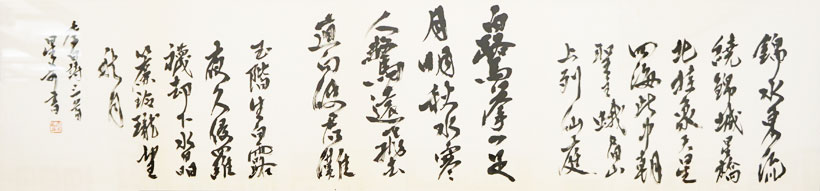 錦水東流
繞錦城星橋
北挂象天星
四海此中朝
聖主峨眉山
上列仙庭
白鷺拳一足
月明秋水寒
人驚遠飛去
直向使君灘
玉階生白露
夜久侵羅
襪却下水晶
簾玲瓏望
秋月
詩三首
書